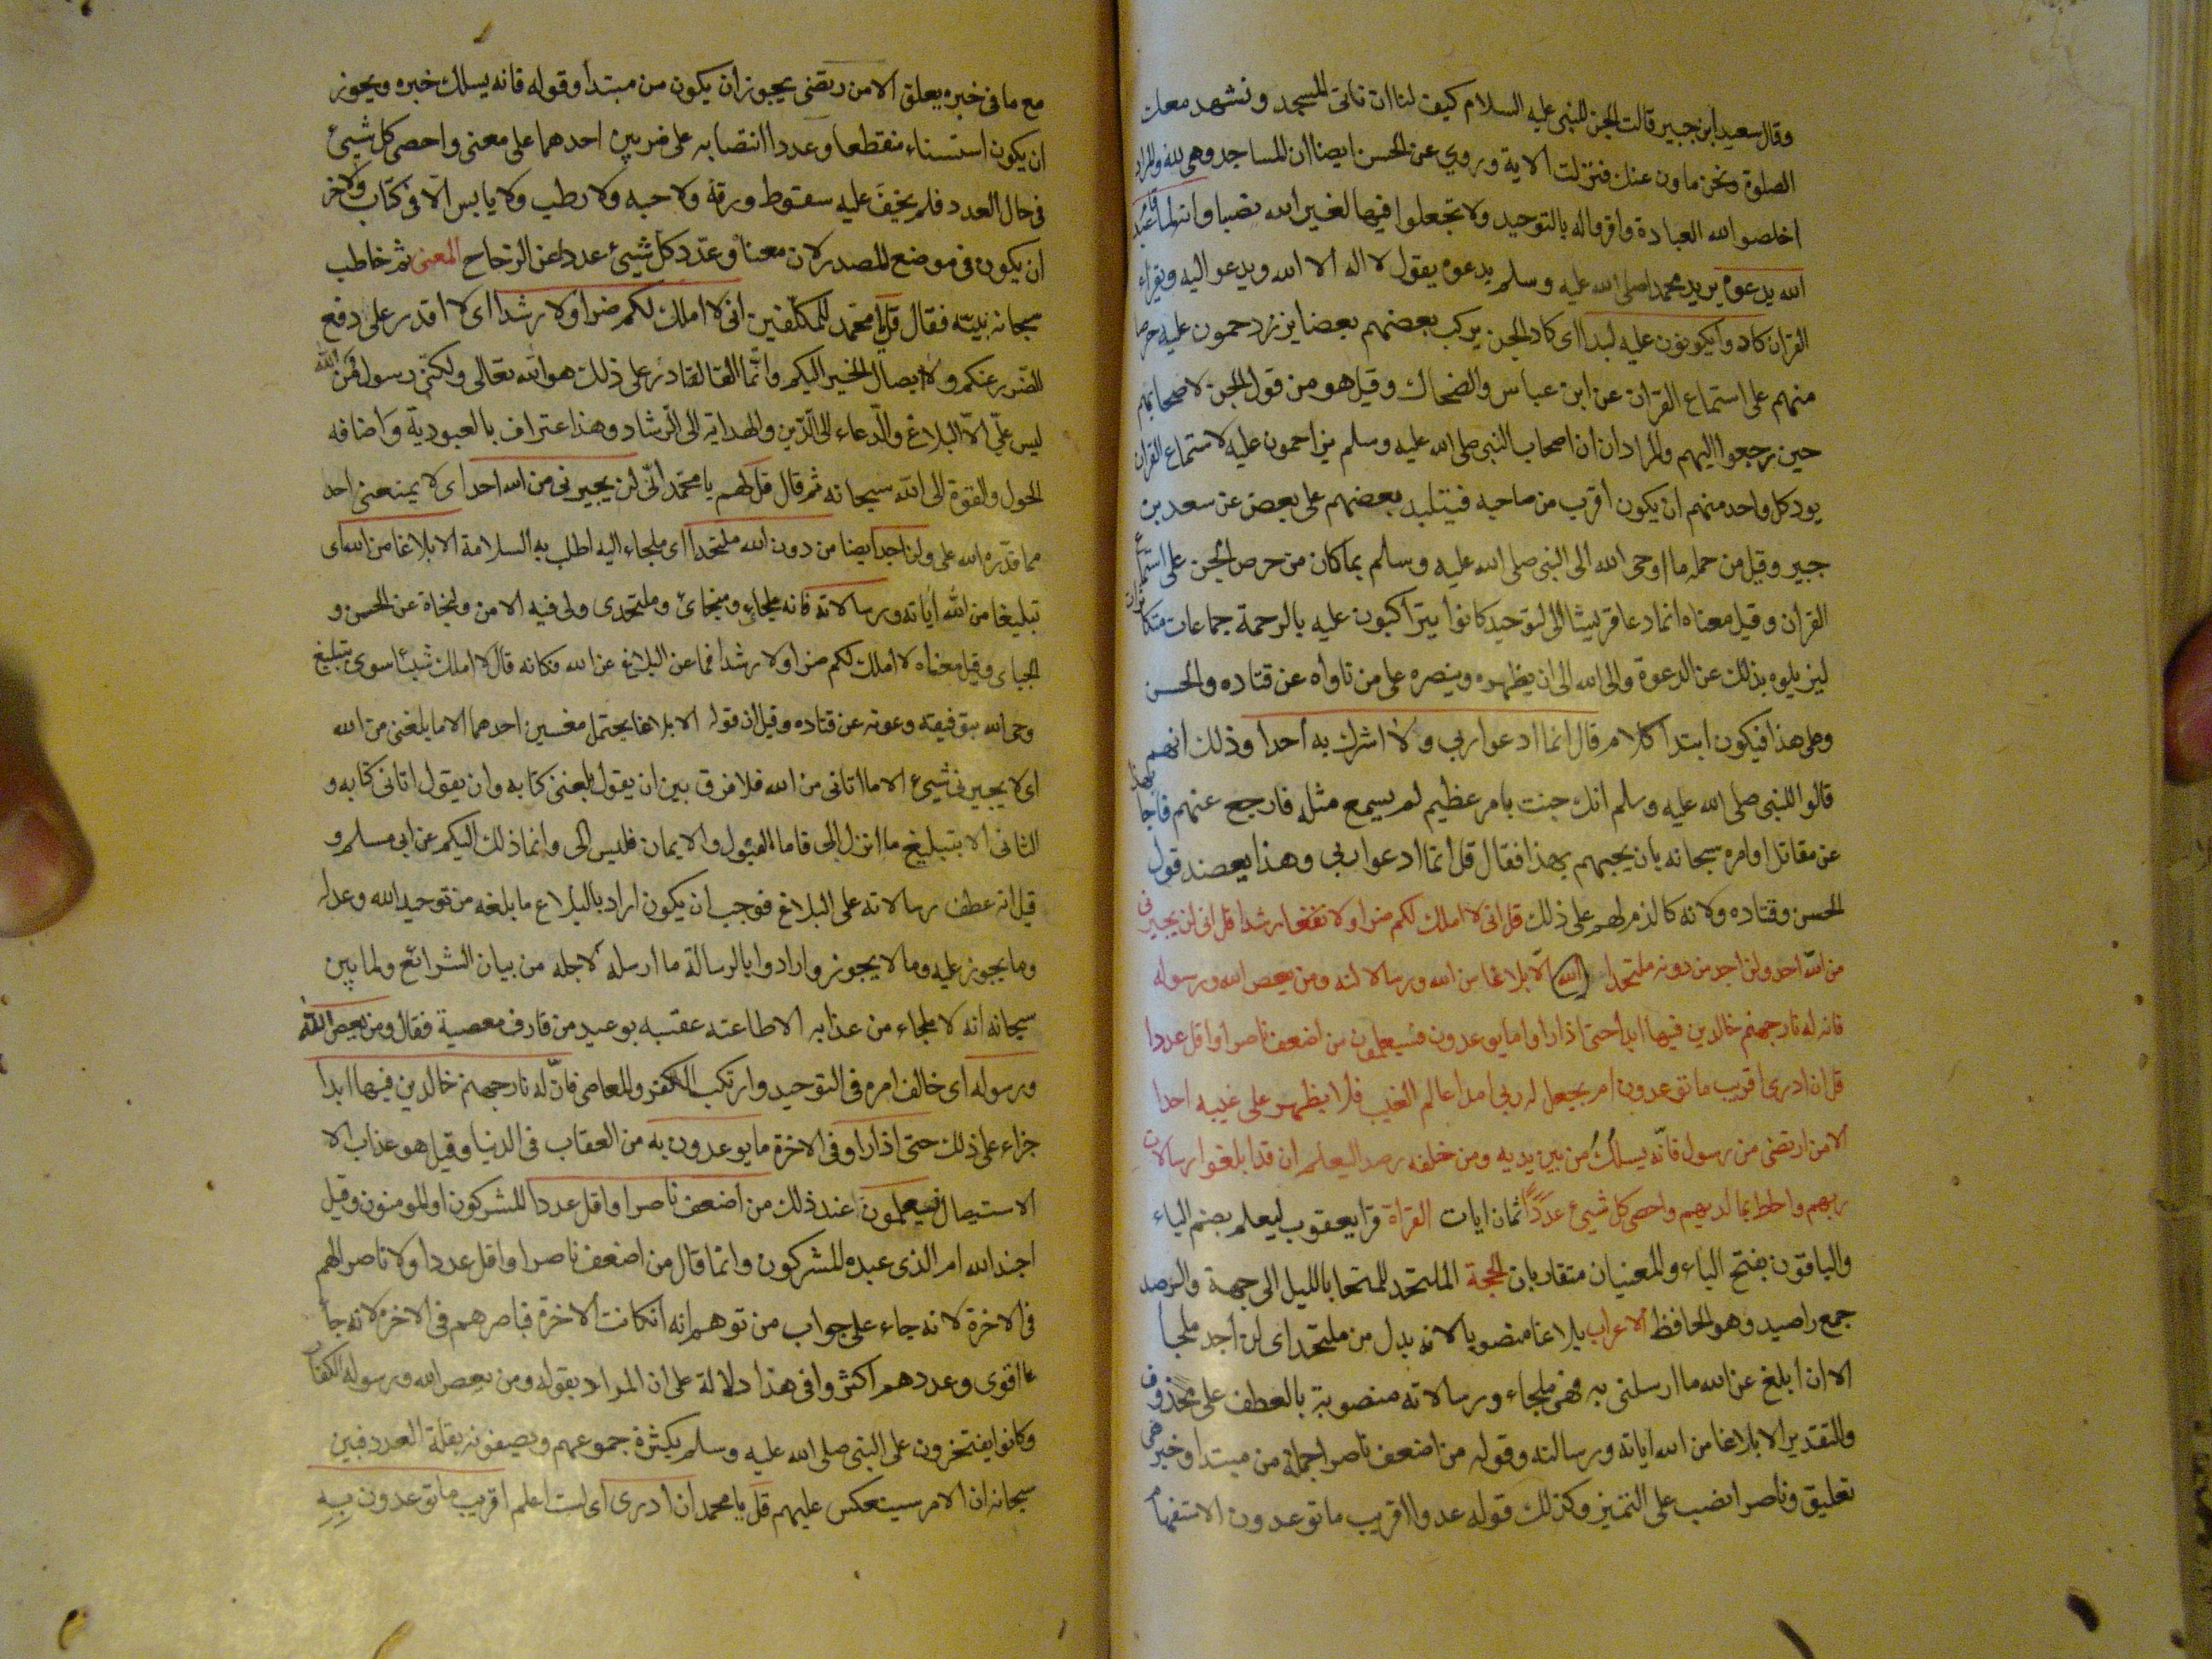 وقال سعيد ابن جبير قالت الجن للنبي عليه السلام كيف لنا ان ناتى المسجد ونشهد معك
الصلوة ونحن ناون عنك فنزلت الاية وروي عن الحسن ايضا ان المساجد وهى لله والمراد
اخلصوا لله العبادة واقروا له بالتوحيد ولا تجعلوا فيها لغير الله نصيبا وانه لما قام عبد
الله يدعوه يريد محمدا صلى الله عليه وسلم يدعوه يقول لا اله الا الله ويدعو اليه ويقراء
القران كادوا يكونون عليه لبدا اى كاد الجن يركب بعضهم بعضا يزدحمون عليه حرصا
منهم على استماع القران عن ابن عباس والضحاك وقيل هو من قول الجن لاصحابهم
حين رجعوا اليهم والمراد ان اصحاب النبي صلى الله عليه وسلم يزاحمون عليه لاستماع القران
يود كل واحد منهم ان يكون اقرب من صاحبه فيتلبد بعضهم على بعض عن سعد بن
جبير وقيل من جمله ما اوحى الله الى النبي صلى الله عليه وسلم بما كان من حرص الجن على استماع
القران وقيل معناه انما دعا قريشا الى التوحيد كانوا يتراكبون عليه بالرحمة جماعات متكاثرات
ليزيلوه بذلك عن الدعوة والى الله الى ان يظهره وينصره على من ناواه عن قتاده والحسن
وعلى هذا فيكون ابتدا كلام قال انما ادعوا ربي ولا اشرك به احدا وذلك انهم
قالوا للنبي صلى الله عليه وسلم انك جئت بامر عظيم لم يسمع مثله فارجع عنهم فاجابهم بهذا
عن مقاتل او امره سبحانه بان يجيبهم بهذا فقال قل انما ادعوا ربي وهذا يعضد قول
الحسن وقتاده ولانه كالذم لهم على ذلك قل انى لا املك لكم ضرا ولا نفعا رشدا قل انى لن يجيرنى
من الله احد ولن اجد من دونه ملتحدا الله الا بلاغا من الله ورسالاته ومن يعص الله ورسوله
فانه له نار جهنم خالدين فيها ابدا حتى اذا راوا ما يوعدون فسيعلمون من اضعف ناصرا واقل عددا
قل ان ادرى اقريب ما توعدون ام يجعل له ربى امدا عالم الغيب فلا يظهر على غيبه احدا
الا من ارتضى من رسول فانه يسلك من بين يديه ومن خلفه رصدا ليعلم ان قد ابلغوا رسالات
ربهم واحاط بما لديهم واحصى كل شيئ عددا ثمان ايات القراة قرا يعقوب ليعلم بضم الياء
والباقون بفتح الياء والمعنيان متقاربان الحجة الملتحد الملتجا بالليل الى جهة والرصد
جمع راصيد وهو الحافظ الاعراب بلاغا منصوبا لانه بدل من ملتحدا اى لن اجد ملجا
الا ان ابلغ عن الله ما ارسلنى به فهى ملجاء ورسالاته منصوبة بالعطف على محذوف
والتقدير الا بلاغا من الله اياته ورسالته وقوله من اضعف ناصرا جملة من مبتدا وخبر هى
تعليق وناصرا نصب على التميز وكذلك قوله عددا اقريب ما توعدون الاستفهام
مع ما فى خبره يعلق الا من رتضى يجوز ان يكون من مبتدا وقوله فانه يسلك خبره ويجوز
ان يكون استسناء منقطعا وعددا انتصابه على ضربين احدهما على معنى واحصى كل شيئ
فى حال العدد فلم يخف عليه سقوط ورقة ولا حبه ولا رطب ولا يابس الا فى كتاب والاخر
ان يكون فى موضع المصدر لان معناه وعدد كل شيئ عددا عن الزجاج المعنى ثم خاطب
سبحانه نبيه فقال قل يا محمد للمكلفين انى لا املك لكم ضرا ولا رشدا اى لا اقدر على دفع
الضرر عنكم ولا ايصال الخير اليكم وانما القا القادر على ذلك هو الله تعالى ولكنى رسول من الله
ليس على الا البلاغ والدعاء الى الدين والهداية الى الرشاد وهذا اعتراف بالعبودية واضافه
الحول والقوة الى الله سبحانه ثم قال قل لهم يا محمد انى لن يجيرنى من الله احد اى لا يمنعنى احد
مما قدره الله على ولن اجد ايضا من دون الله ملتحدا اى ملجاء اليه اطلب به السلامة الا بلاغا من الله اى
تبليغا من الله اياته ورسالاته فانه ملجاء ومنجائ وملتحدى ولى فيه الامن والنجاة عن الحسن و
الجباى وقيل معناه لا املك لكم ضرا ولا رشدا فما عن البلاغ عن الله فكانه قال لا املك شيئا سوى تبليغ
وحى الله بتوفيقه وعونه عن قتاده وقيل ان قوله الا بلاغا يحتمل معنيين احدهما الا ما بلغنى من الله
اى لا يجيرنى شيئ الا ما اتانى من الله فلا فرق بين ان يقول بلغنى كتابه وان يقول اتانى كتابه و
الثانى الا بتبليغ ما انزل الى فاما القبول والايمان فليس الى وانما ذلك اليكم عن ابى مسلم و
قيل انه عطف رسالاته على البلاغ فوجب ان يكون اراد بالبلاغ ما بلغه من توحيد الله وعدله
وما يجوز عليه وما لا يجوز وارادوا بالرسالة ما ارسله لاجله من بيان الشرائع ولما بين
سبحانه انه لا ملجاء من عذابه الا طاعته عقبه بوعيد من قارف معصية فقال ومن يعص الله
ورسوله اى خالف امره فى التوحيد وارتكب الكفر والمعاصى فان له نار جهنم خالدين فيها ابدا
جزاء على ذلك حتى اذا راو فى الاخرة ما يوعدون به من العقاب فى الدنيا وقيل هو عذاب الا
الاستيصال فسيعلمون عند ذلك من اضعف ناصرا واقل عددا المشركون او المومنون وقيل
اجند الله ام الذى عبده المشركون وانما قال من اضعف ناصرا واقل عددا ولا ناصر لهم
فى الاخرة لانه جاء على جواب من توهم انه ان كانت الاخرة فناصرهم فى الاخرة لانه جا
ء اقوى وعددهم اكثر وافى هذا دلالة على ان المراد بقوله ومن يعص الله ورسوله الكفار
وكانوا يفتخرون على النبى صلى الله عليه وسلم بكثرة جموعهم ويصفونه بقلة العدد فبين
سبحانه ان الامر سينعكس عليهم قل يا محمد ان ادرى اى لست اعلم اقريب ما توعدون به